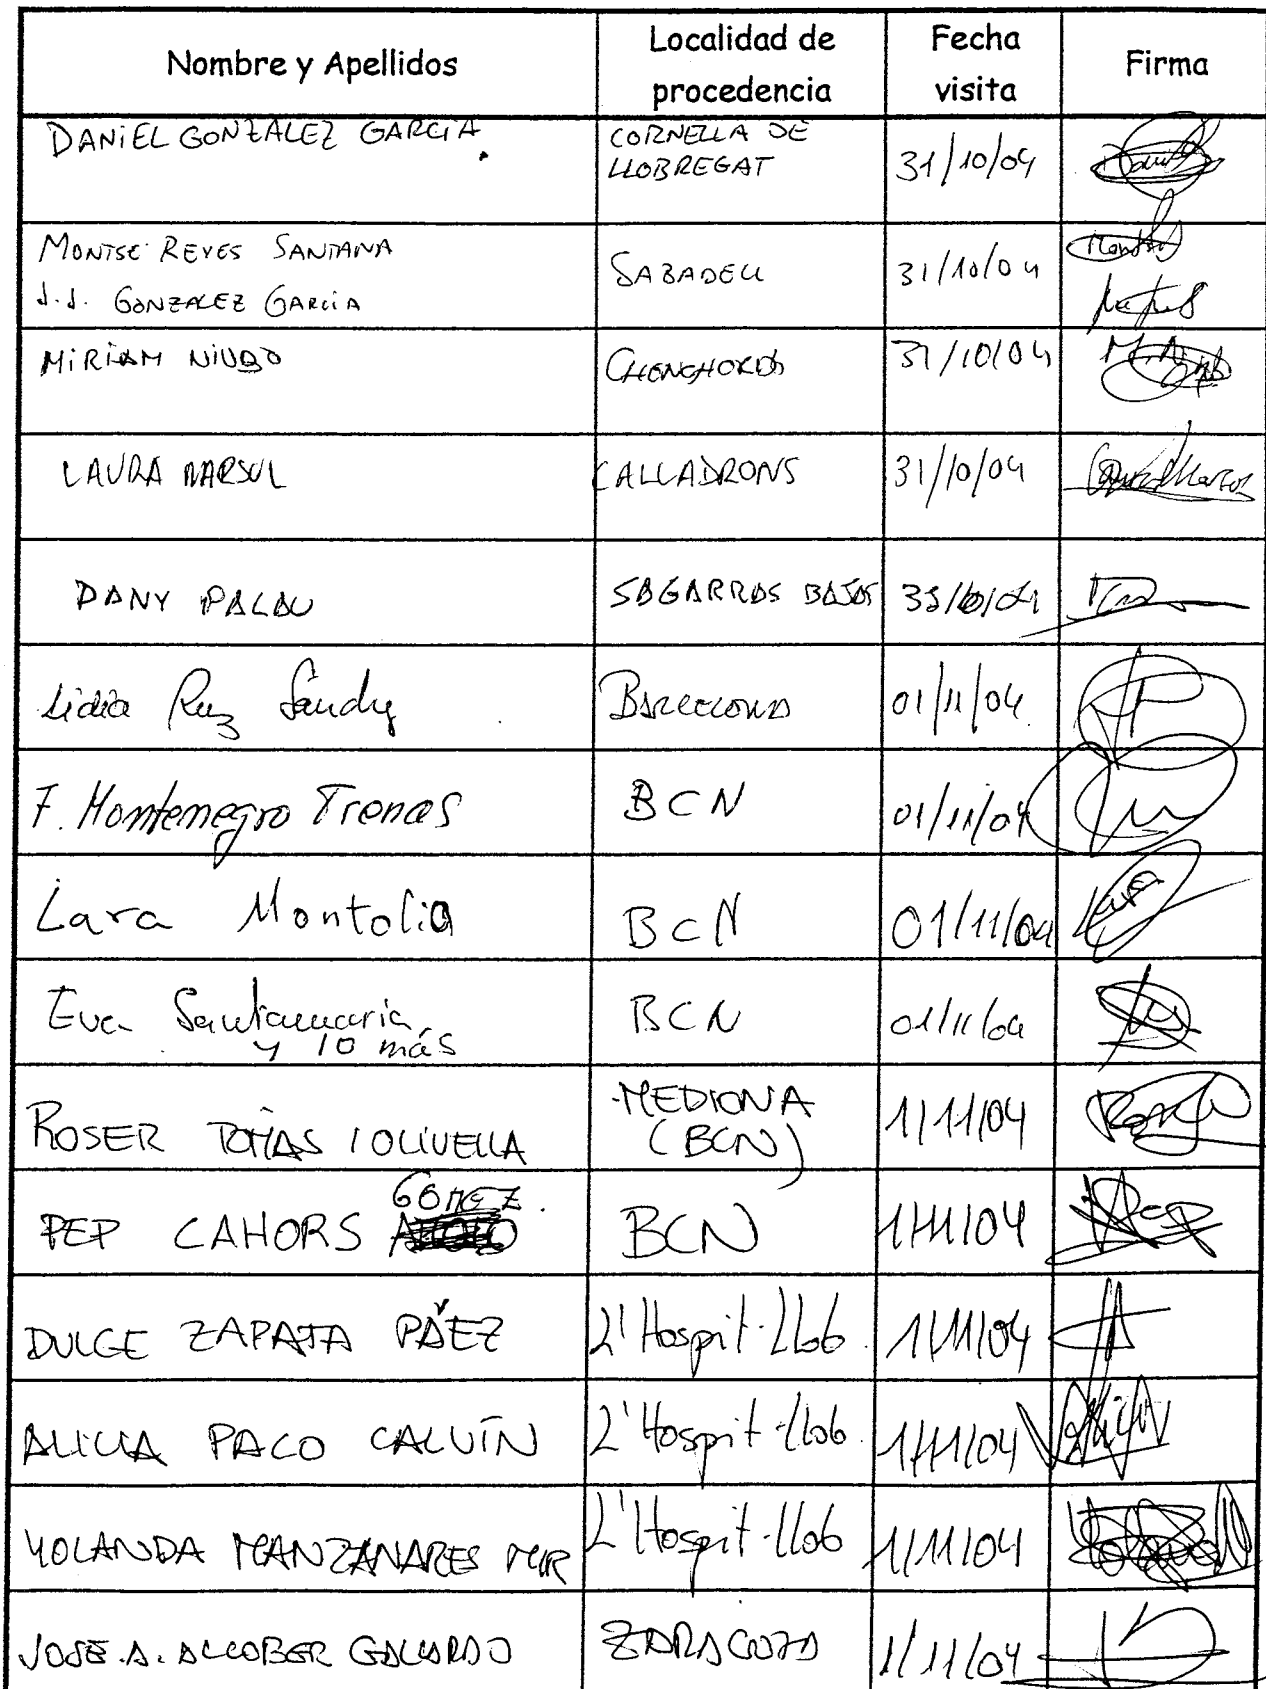 Nombre y Apellidos
Localidad de
procedencia
Fecha
visita
Firma
DANIEL GONZALEZ GARCIA.
CORNELLA DE
LLOBREGAT
31/10/04
MONTSE REYES SANTANA
J.J. GONZALEZ GARCIA
SABADELL
31/10/04
MIRIAM
31/10/04
LAURA
CALLADRONS
31/10/04
DANY PALAU
SAGARRAS BAJAS
Lidia Ruz
BARCELONA
01/11/04
F. Montenegro Trenas
BCN
01/11/04
Lara Montolia
BCN
01/11/04
Eva Santamaria
y 10 más
BCN
01/11/04
ROSER TOMAS I OLIVELLA
MEDIONA
(BCN)
1/11/04
GOMEZ
PEP CAHORS
BCN
1/11/04
DULCE ZAPATA PÁEZ
L'Hospit-Llob
1/11/04
ALICIA PACO CALVÍN
L'Hospit-Llob
1/11/04
YOLANDA MANZANARES MIR
L'Hospit-Llob
1/11/04
JOSE.A. ALCOBER GALLARDO
ZARAGOZA
1/11/04